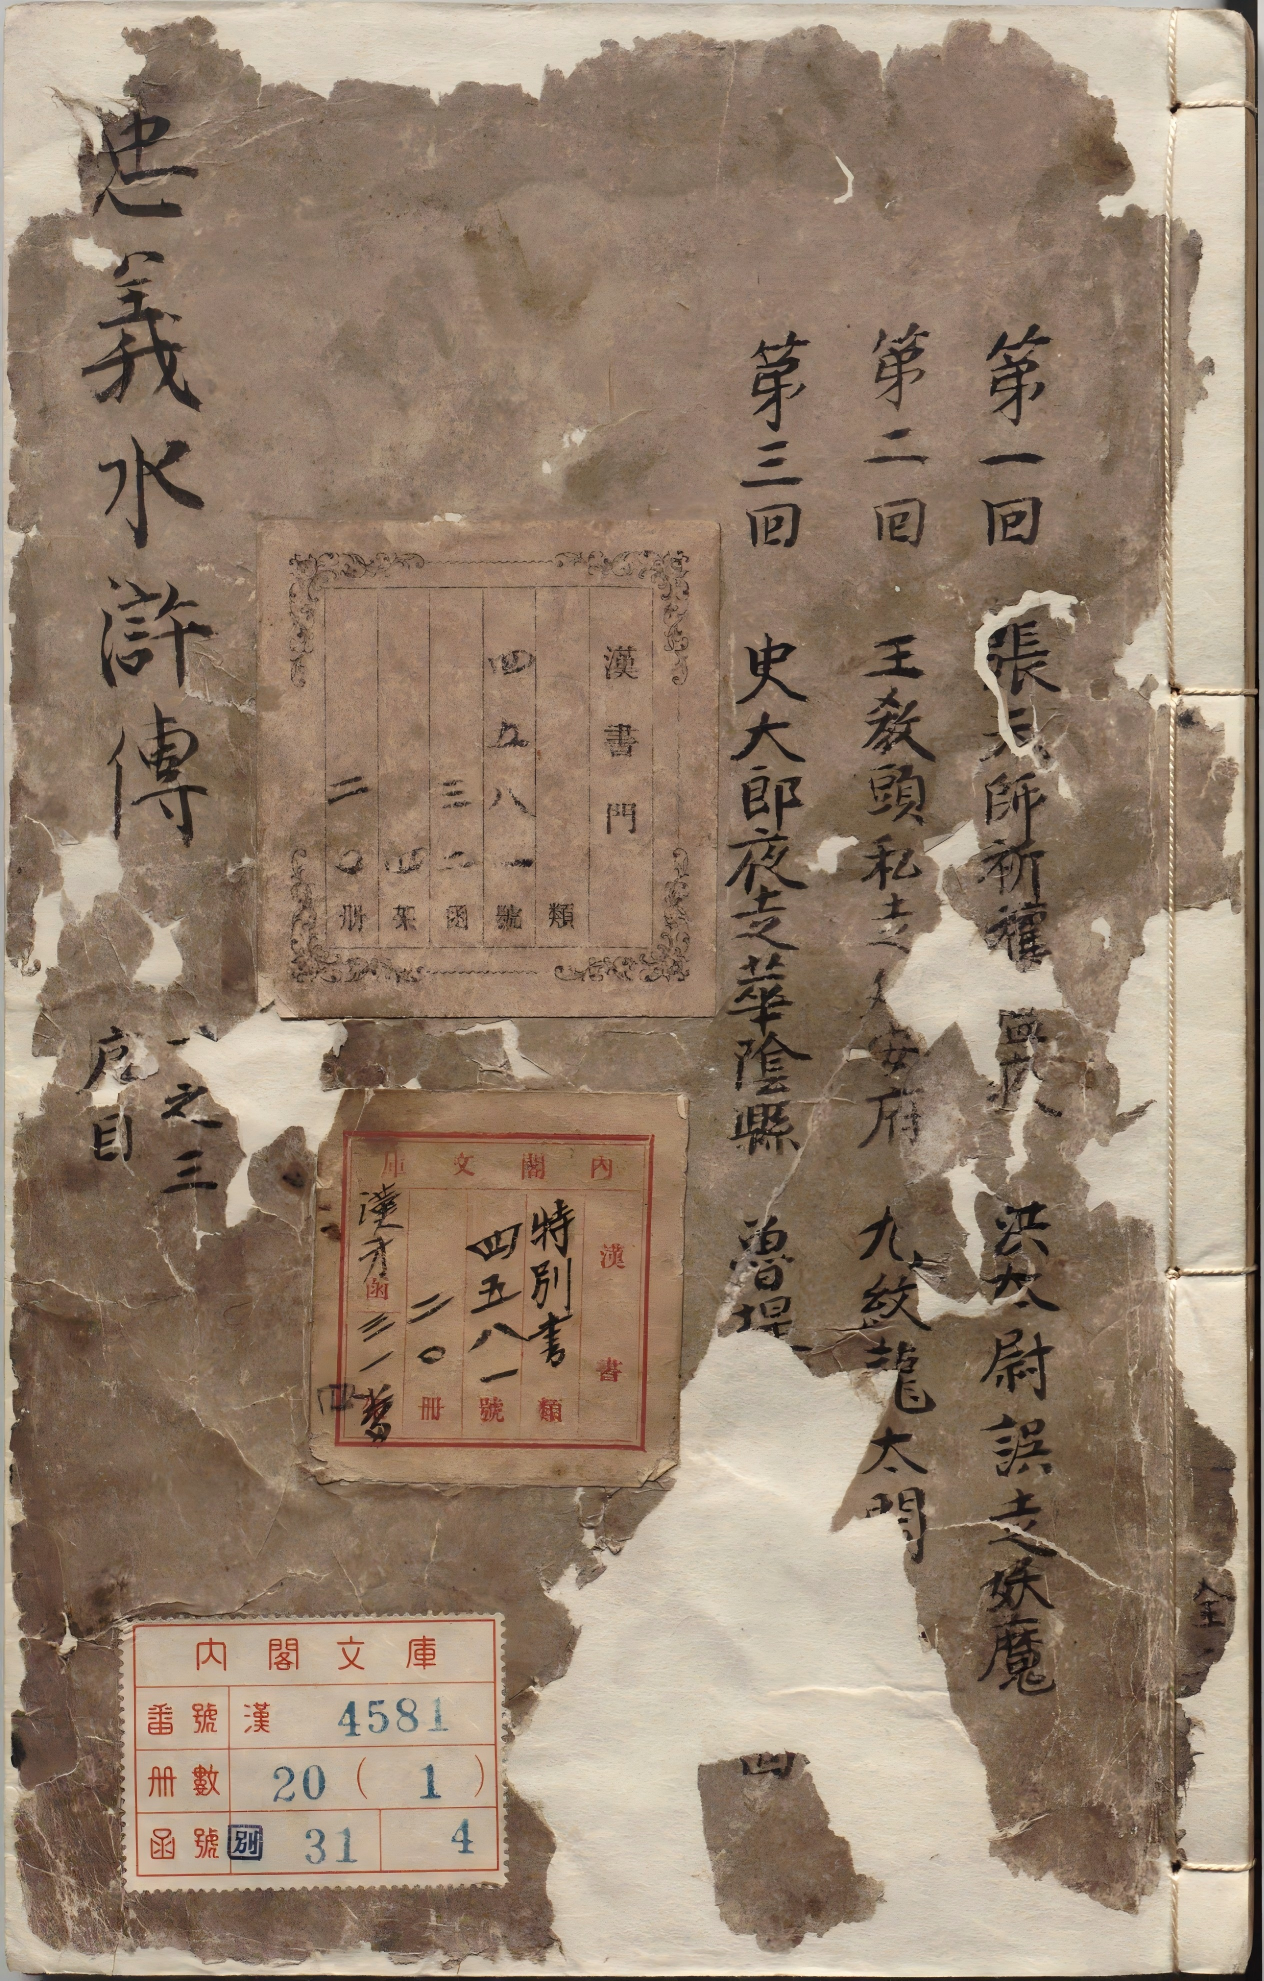 第一回 張天師祈禳 洪太尉誤走妖魔
第二回 王教頭私走 安府 九紋龍大鬧
第三回 史大郎夜走華陰縣 魯提
四
忠義水滸傳
之三
目
全
漢書門
類
四五八一號
三二函
四架
二〇册
內閣文庫
漢書
特別書類
四五八一號
二〇冊
漢才函三一
四
內閣文庫
番號 漢 4581
冊數 20 ( 1 )
函號 別 31 4